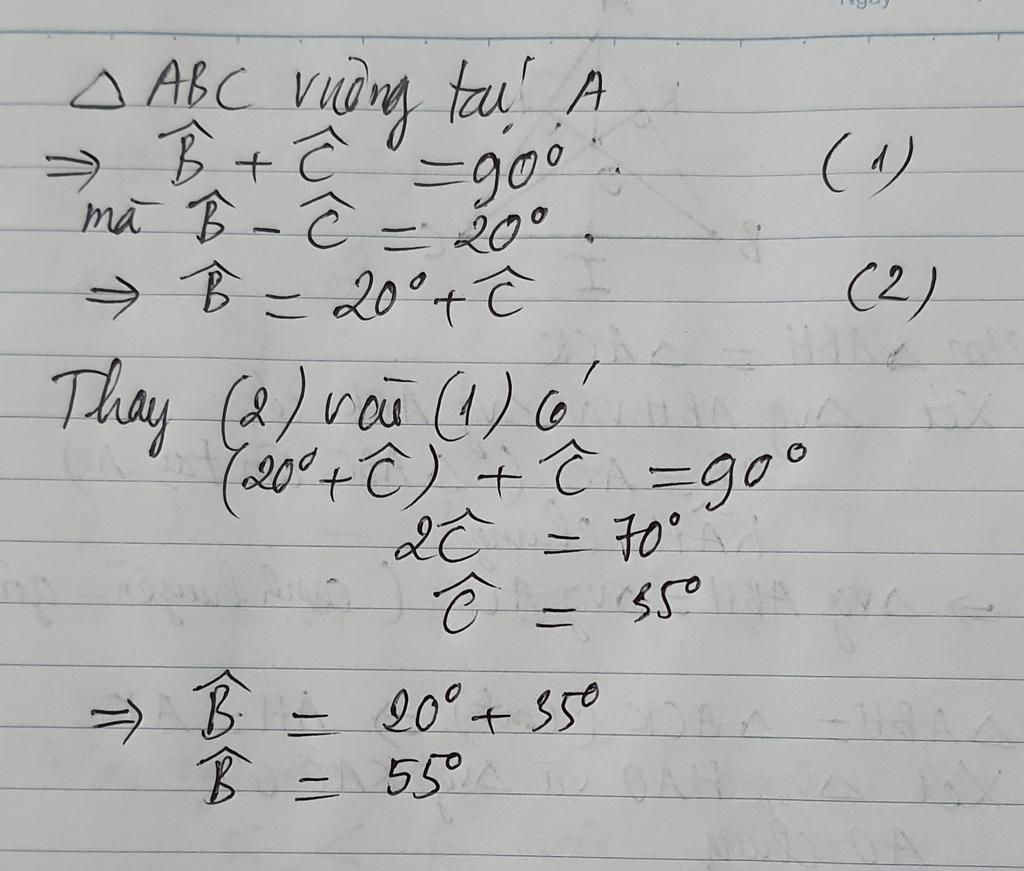 △ ABC vuông tại A
⇒ B̂ + Ĉ = 90° (1)
mà B̂ - Ĉ = 20°.
⇒ B̂ = 20° + Ĉ (2)
Thay (2) vào (1) có
(20° + Ĉ) + Ĉ = 90°
2Ĉ = 70°
Ĉ = 35°
⇒ B̂ = 20° + 35°
B̂ = 55°